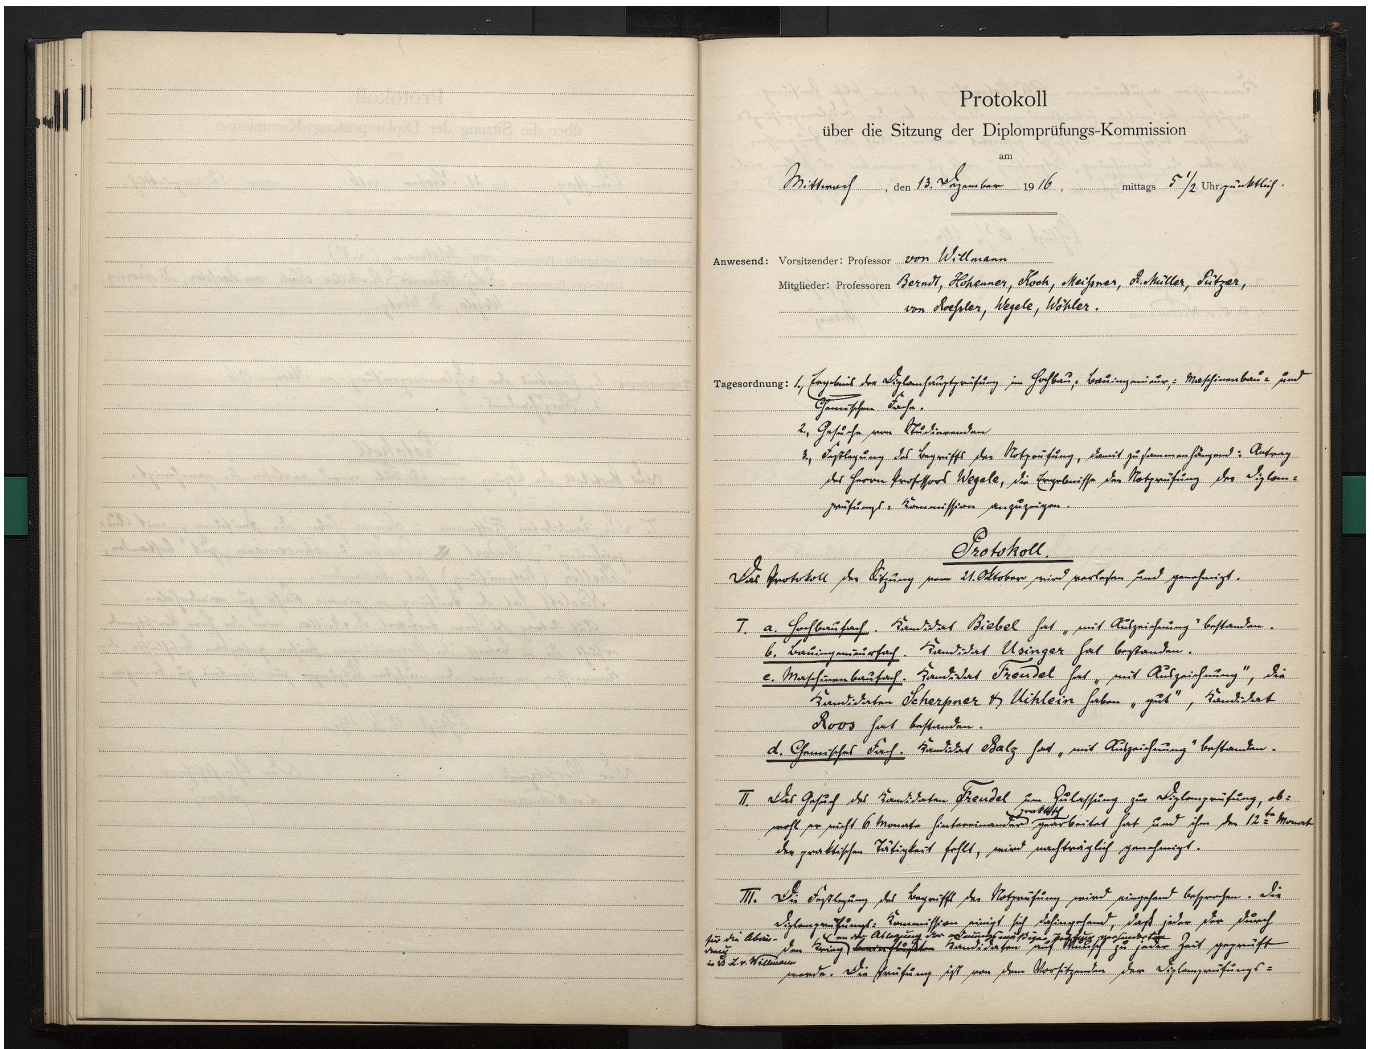 Protokoll
über die Sitzung der Diplomprüfungs-Kommission
am
Mittwoch, den 13. Dezember 1916, mittags 5 1/2 Uhr pünktlich.
Anwesend: Vorsitzender: Professor von Willmann
Mitglieder: Professoren Berndt, Hohenner, Koch, Meißner, R. Müller, Pützer,
von Roeßler, Wegele, Wöhler.
Tagesordnung: 1, Ergebnis der Diplomhauptprüfung im Hochbau-, Bauingenieur-, Maschinenbau- und
Chemischen Fache.
2, Gesuche von Studierenden
3, Festlegung des Begriffs der Notprüfung, damit zusammenhängend: Antrag
des Herrn Professors Wegele, die Ergebnisse der Notprüfung der Diplom-
prüfungs-Kommission anzuzeigen.
Protokoll.
Das Protokoll der Sitzung vom 21. Oktober wird verlesen und genehmigt.
I. a. Hochbaufach. Kandidat Biebel hat „mit Auszeichnung" bestanden.
b. Bauingenieurfach. Kandidat Usinger hat bestanden.
c. Maschinenbaufach. Kandidat Freudel hat „mit Auszeichnung", die
Kandidaten Scherpner & Uihlein haben „gut", Kandidat
Roos hat bestanden.
d. Chemisches Fach. Kandidat Balz hat „mit Auszeichnung" bestanden.
II. Das Gesuch des Kandidaten Freudel um Zulassung zur Diplomprüfung, ob-
praktisch
wohl er nicht 6 Monate hintereinander gearbeitet hat und ihm der 12te Monat
der praktischen Tätigkeit fehlt, wird nachträglich genehmigt.
III. Die Festlegung des Begriffs der Notprüfung wird eingehend besprochen. Die
Diplomprüfungs-Kommission einigt sich dahingehend, daß jeder der durch
für die Abän- an der Ablegung der ordnungsmäßigen Prüfung gehinderten
derung
den Krieg beeinflußten Kandidaten auf Wunsch zu jeder Zeit geprüft
v. Willmann
werde. Die Prüfung ist von dem Vorsitzenden der Diplomprüfungs-